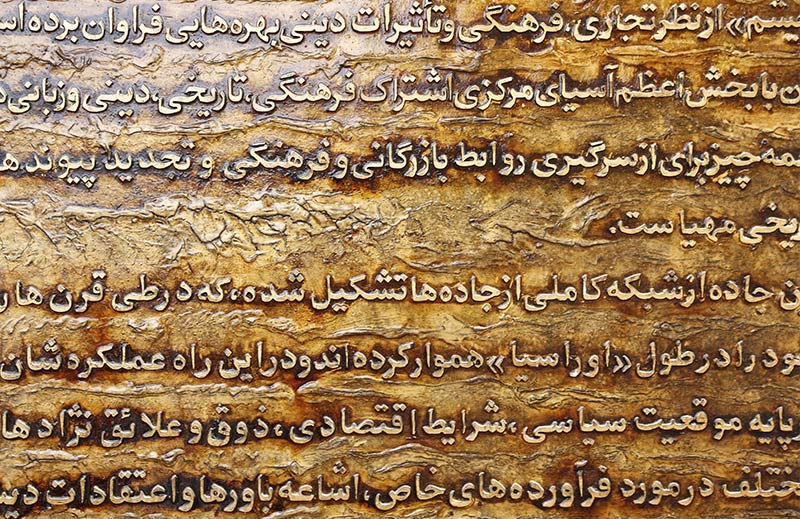 یشم» از نظر تجاری، فرهنگی و تأثیرات دینی بهره‌هایی فراوان برده اس
ن با بخش اعظم آسیای مرکزی اشتراک فرهنگی، تاریخی، دینی و زبانی د
مه چیز برای از سرگیری روابط بازرگانی و فرهنگی و تجدید پیوندها
ریخی مهیاست.
ن جاده از شبکه کاملی از جاده‌ها تشکیل شده، که در طی قرن ها ر
ود را در طول «اوراسیا» هموار کرده اند و در این راه عملکره شان
ر پایه موقعیت سیاسی، شرایط اقتصادی، ذوق و علائق نژادها
ختلف در مورد فرآورده‌های خاص، اشاعه باورها و اعتقادات دین